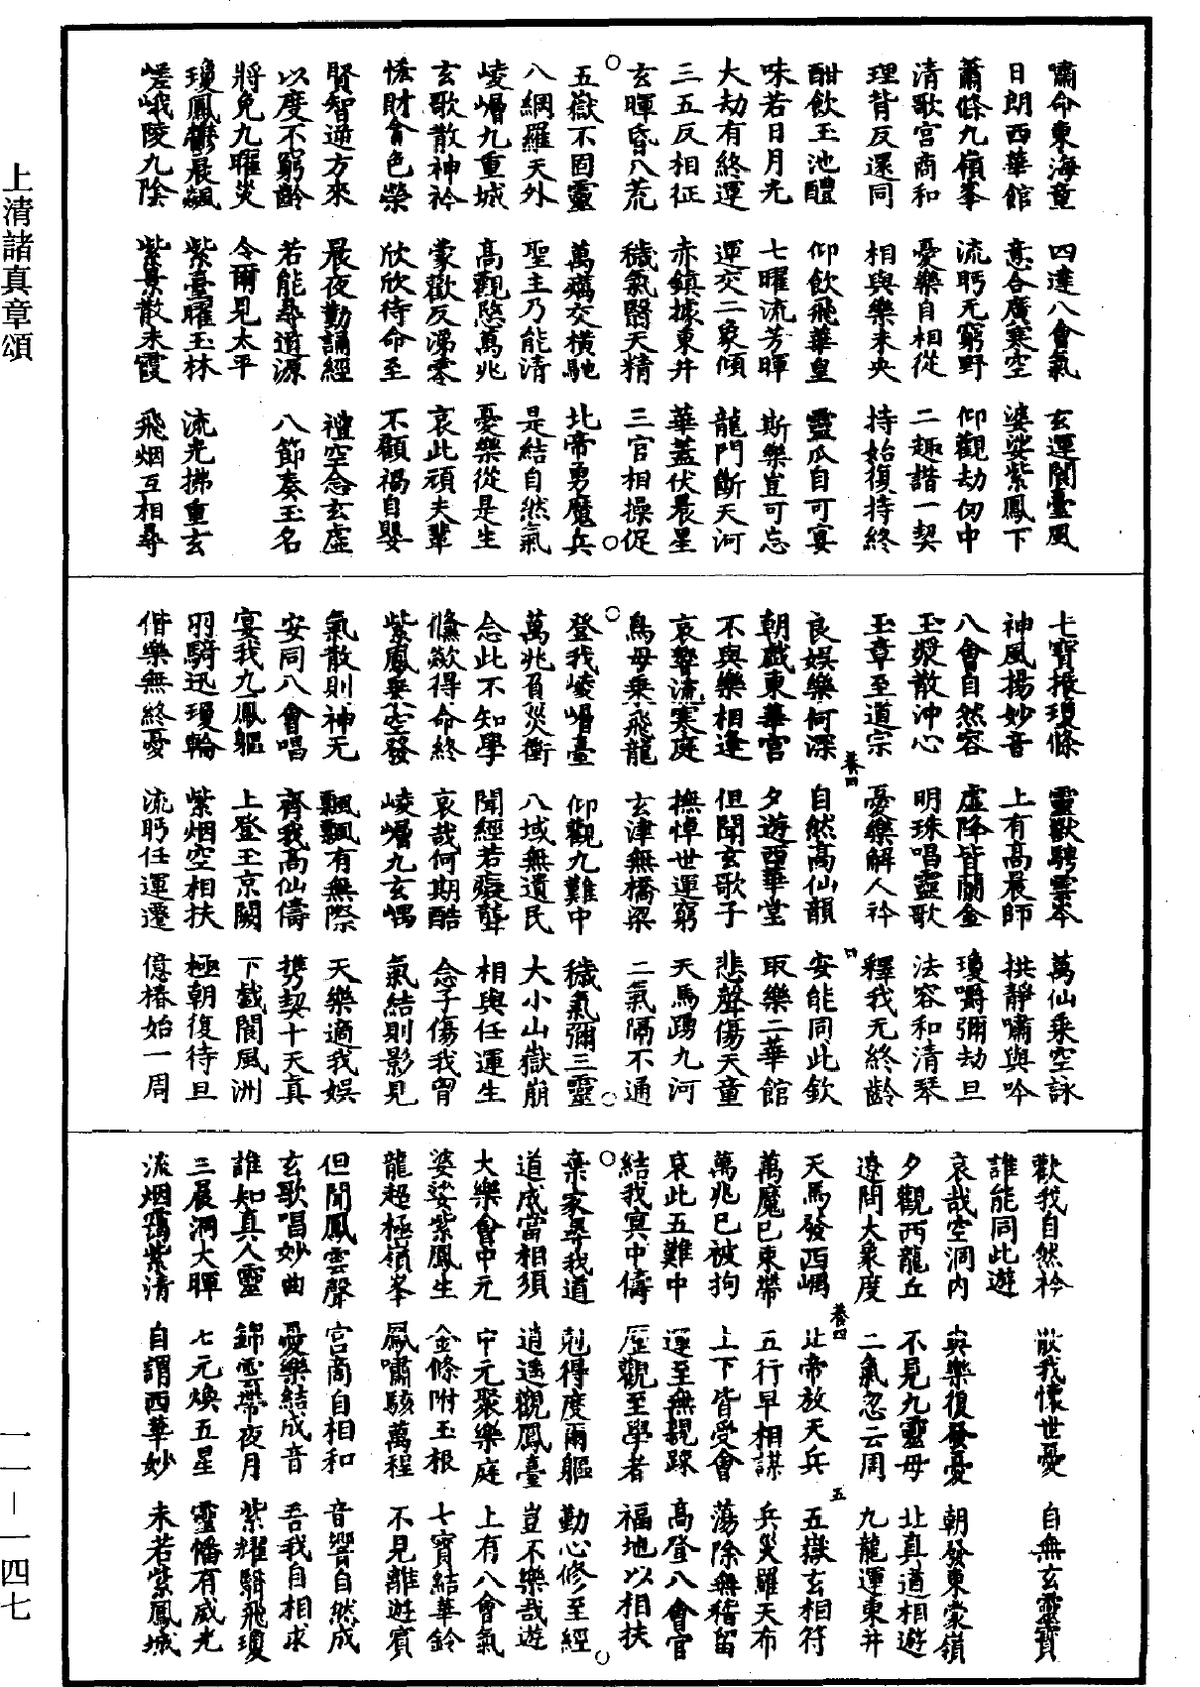 嘯命東海童　四達八會氣　玄運閬臺風
日朗西華館　意合廣寒空　婆娑紫鳳下
蕭條九嶺峯　流眄无窮野　仰觀劫仞中
清歌宮商和　憂樂自相從　二趣諧一契
理背反還同　相與樂未央　持始復持終
酣飲玉池醴　仰飲飛華皇　靈瓜自可宴
味若日月光　七曜流芳暉　斯樂豈可忘
大劫有終運　運交二象傾　龍門斷天河
三五反相征　赤鎮據東井　華蓋伏晨星
玄暉昏八荒　穢氣翳天精　三官相操促
五嶽不固靈　萬癘交橫馳　北帝勇魔兵
八網羅天外　聖主乃能清　是結自然氣
崚嶒九重城　高觀愍萬兆　憂樂從是生
玄歌散神衿　蒙歡反涕零　哀此頑夫輩
恡財貪色榮　欣欣待命至　不顧禍自嬰
賢智逆方來　晨夜勤誦經　禮空念玄虛
以度不窮齡　若能尋道源　八節奏玉名
將免九曜炎　令爾見太平
瓊鳳鬱晨飆　紫臺曜玉林　流光拂重玄
嵯峨陵九陰　紫景散朱霞　飛烟互相尋
七寶振瓊條　靈獸騁雲岑　萬仙乘空詠
神風揚妙音　上有高晨師　拱靜嘯與吟
八會自然容　虛降皆蘭金　瓊嚼彌劫旦
玉漿散沖心　明珠唱靈歌　法容和清琴
玉章至道宗　憂樂解人衿　釋我无終齡
養四　四
良娛樂何深　自然高仙韻　安能同此欽
朝戲東華宮　夕遊西華堂　取樂二華館
不與樂相逢　但聞玄歌子　悲聲傷天童
哀響流寒庭　撫悼世運窮　天馬踴九河
鳥母乘飛龍　玄津無橋梁　二氣隔不通
登我崚嶒臺　仰觀九難中　穢氣彌三靈
萬兆負災衝　八域無遺民　大小山嶽崩
念此不知學　聞經若瘂聾　相與任運生
儵歘得命終　哀哉何期酷　念子傷我胷
紫鳳乘空發　崚嶒九玄嵎　氣結則影見
氣散則神无　飄飄有無際　天樂適我娛
安同八會唱　齊我高仙儔　携契十天真
宴我九鳳軀　上登玉京闕　下戲閬風洲
羽騎迅瓊輪　紫烟空相扶　極朝復待旦
偕樂無終憂　流眄任運遷　億椿始一周
歡我自然衿　散我懷世憂　自無玄靈賓
誰能同此遊
哀哉空洞內　與樂復發憂　朝發東蒙嶺
夕觀西龍丘　不見九靈母　北真道相遊
遼問大象度　二氣忽云周　九龍運東井
養四　五
天馬發西嵎　北帝放天兵　五嶽玄相符
萬魔已東帶　五行早相謀　兵災羅天布
萬兆已被拘　上下皆受會　蕩除無稽留
哀此五難中　運至無親踈　高登八會官
結我冥中儔　歷觀至學者　福地以相扶
棄家尋我道　剋得度爾軀　勤心修至經
道成當相須　逍遙觀鳳臺　豈不樂哉遊
大樂會中元　中元聚樂庭　上有八會氣
婆娑紫鳳生　金條附玉根　七寶結華鈴
龍超極嶺峯　鳳嘯駭萬程　不見離遊賓
但聞鳳雲聲　宮商自相和　音響自然成
玄歌唱妙曲　憂樂結成音　吾我自相求
誰知真人靈　錦雲帶夜月　紫耀騎飛瓊
三晨洞大暉　七元煥五星　靈幡有威光
流烟藹紫清　自謂西華妙　未若紫鳳城
上清諸真章頌
一一－一四七